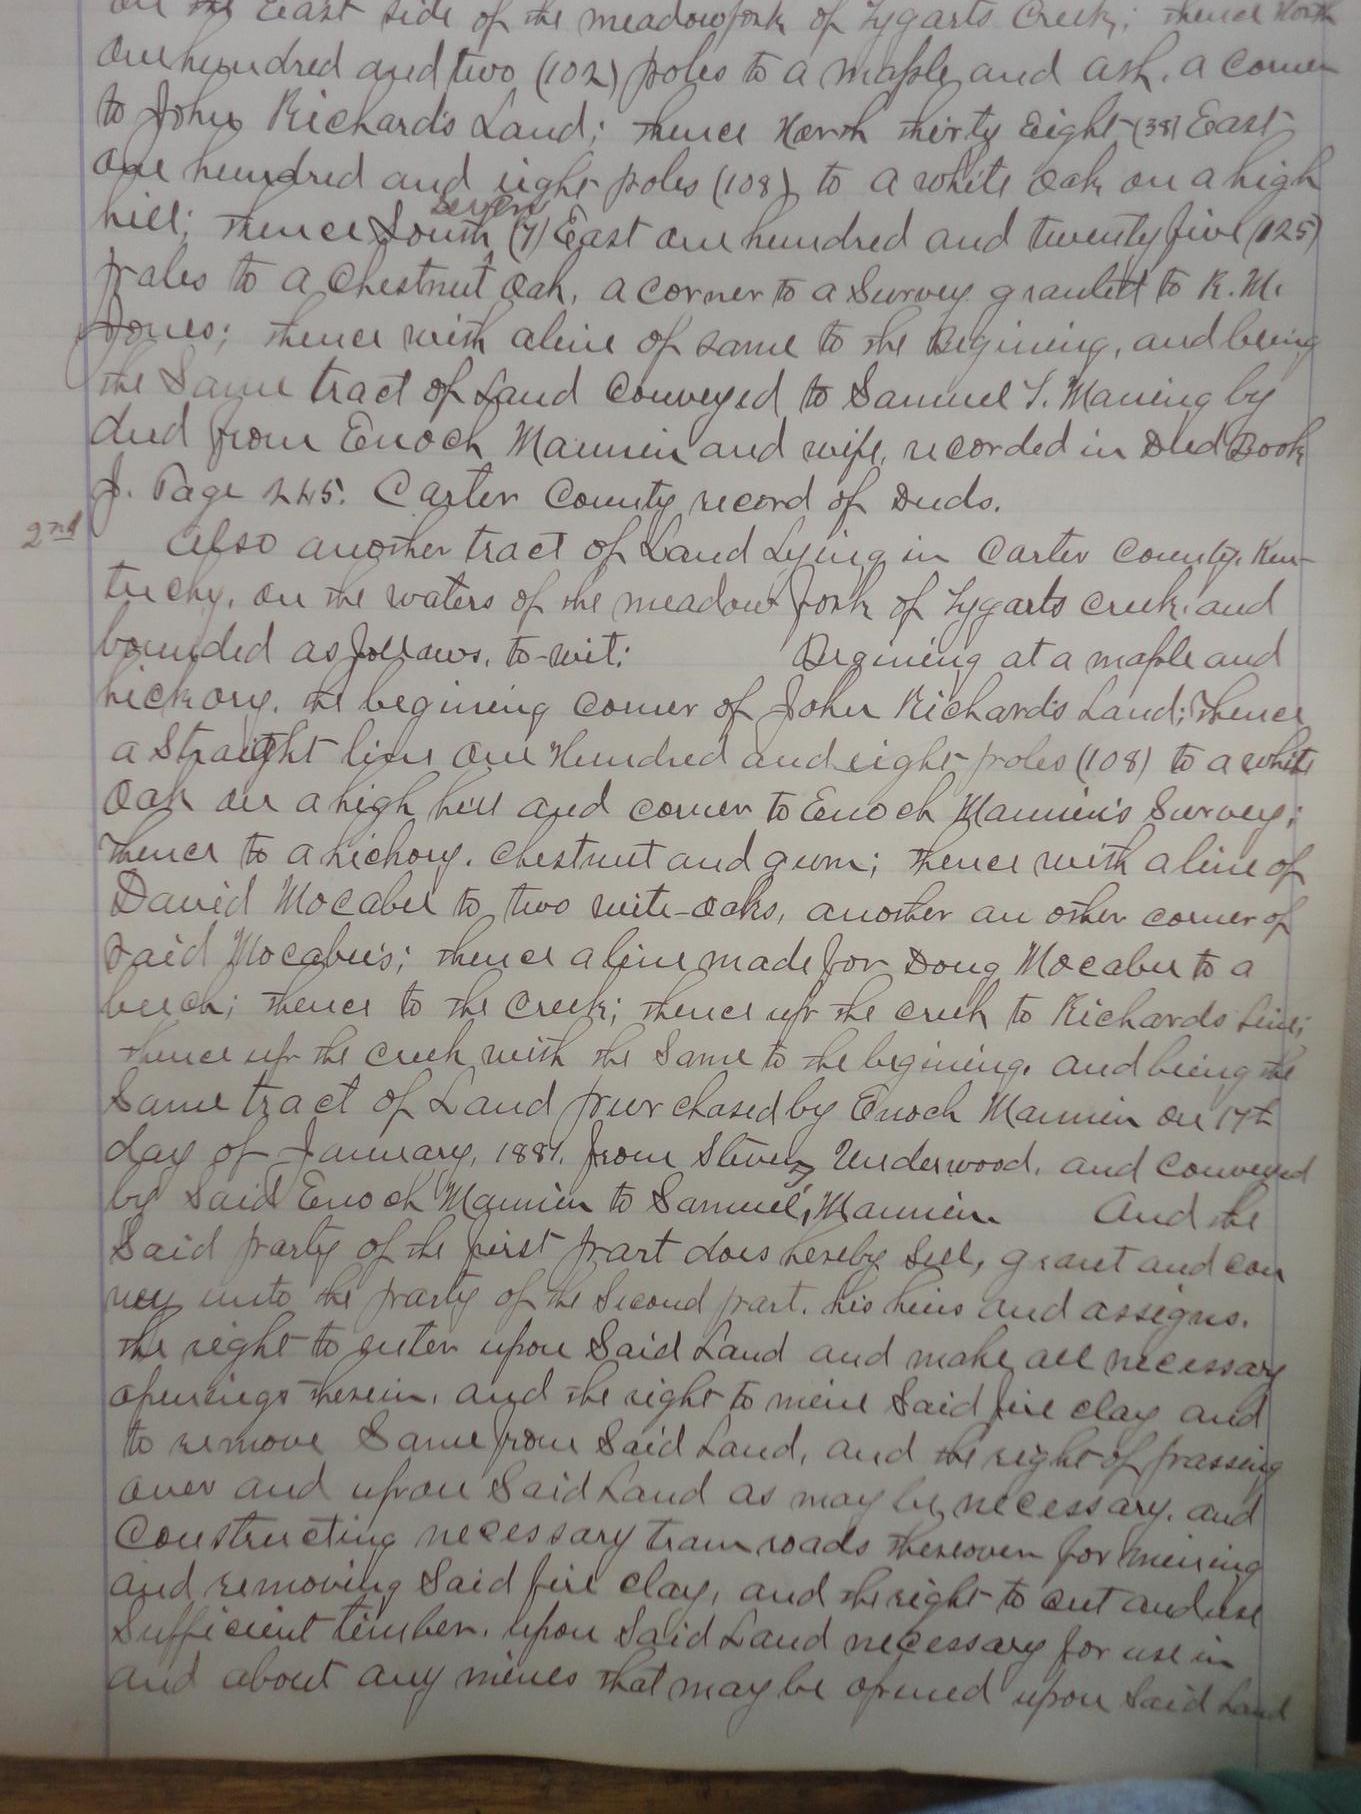 on the East side of the meadow fork of Tygarts Creek; thence North
one hundred and two (102) poles to a maple and ash, a corner
to John Richards Land; thence North thirty Eight (38) East
one hundred and eight poles (108) to a white Oak on a high
hill; thence South seven (7) East one hundred and twenty five (125)
poles to a Chestnut Oak, a corner to a Survey granted to R. M.
Jones; thence with a line of same to the Begining, and being
the Same tract of Land Conveyed to Samuel T. Maning by
deed from Enoch Mannin and wife, recorded in Deed Book
J. Page 245. Carter County record of Deeds.
2nd Also another tract of Land Lying in Carter County, Ken-
tucky, on the waters of the meadow fork of Tygarts creek, and
bounded as follows, to-wit: Begining at a maple and
hickory, the begining corner of John Richards Land; thence
a Straight line One Hundred and eight poles (108) to a white
Oak on a high hill and corner to Enoch Mannin's Survey;
thence to a hickory, chestnut and gum; thence with a line of
David Mocabee to two wite-oaks, another an other corner of
said Mocabee's; thence a line made for Doug Mocabee to a
beech; thence to the Creek; thence up the creek to Richards line;
thence up the creek with the Same to the begining, and being the
Same tract of Land purchased by Enoch Mannin on 17th
day of January, 1881, from Steven Underwood, and conveyed
by Said Enoch Mannin to Samuel Mannin. And the
Said party of the first part does hereby Sell, grant and con
vey unto the party of the Second part, his heirs and assigns,
the right to enter upon Said Land and make all necessary
openings therein, and the right to mine Said fire clay and
to remove Same from Said Land, and the right of passing
over and upon Said Land as may be necessary, and
Constructing necessary tram roads thereover for mining
and removing Said fire clay, and the right to cut and use
Sufficient timber, upon Said Land necessary for use in
and about any mines that may be opened upon Said Land